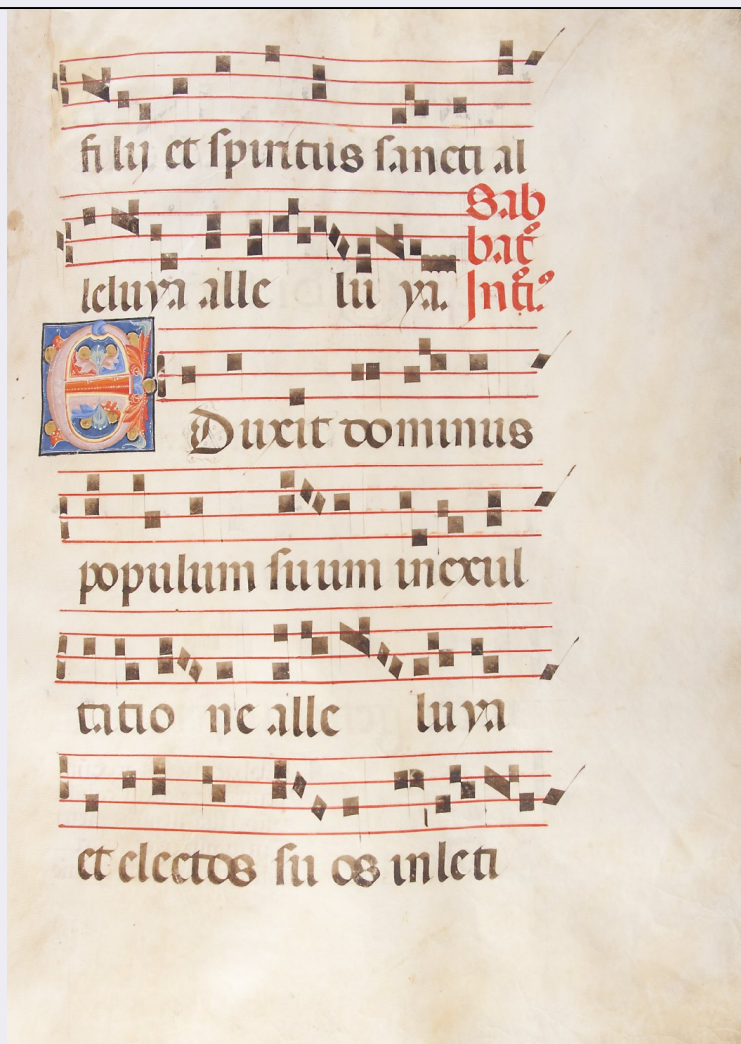 filij et spiritus sancti al
leluya alle lu ya. Sab
bat
Int͛.
EDuxit dominus
populum suum in exul
tatio ne alle luya
et electos su os in leti